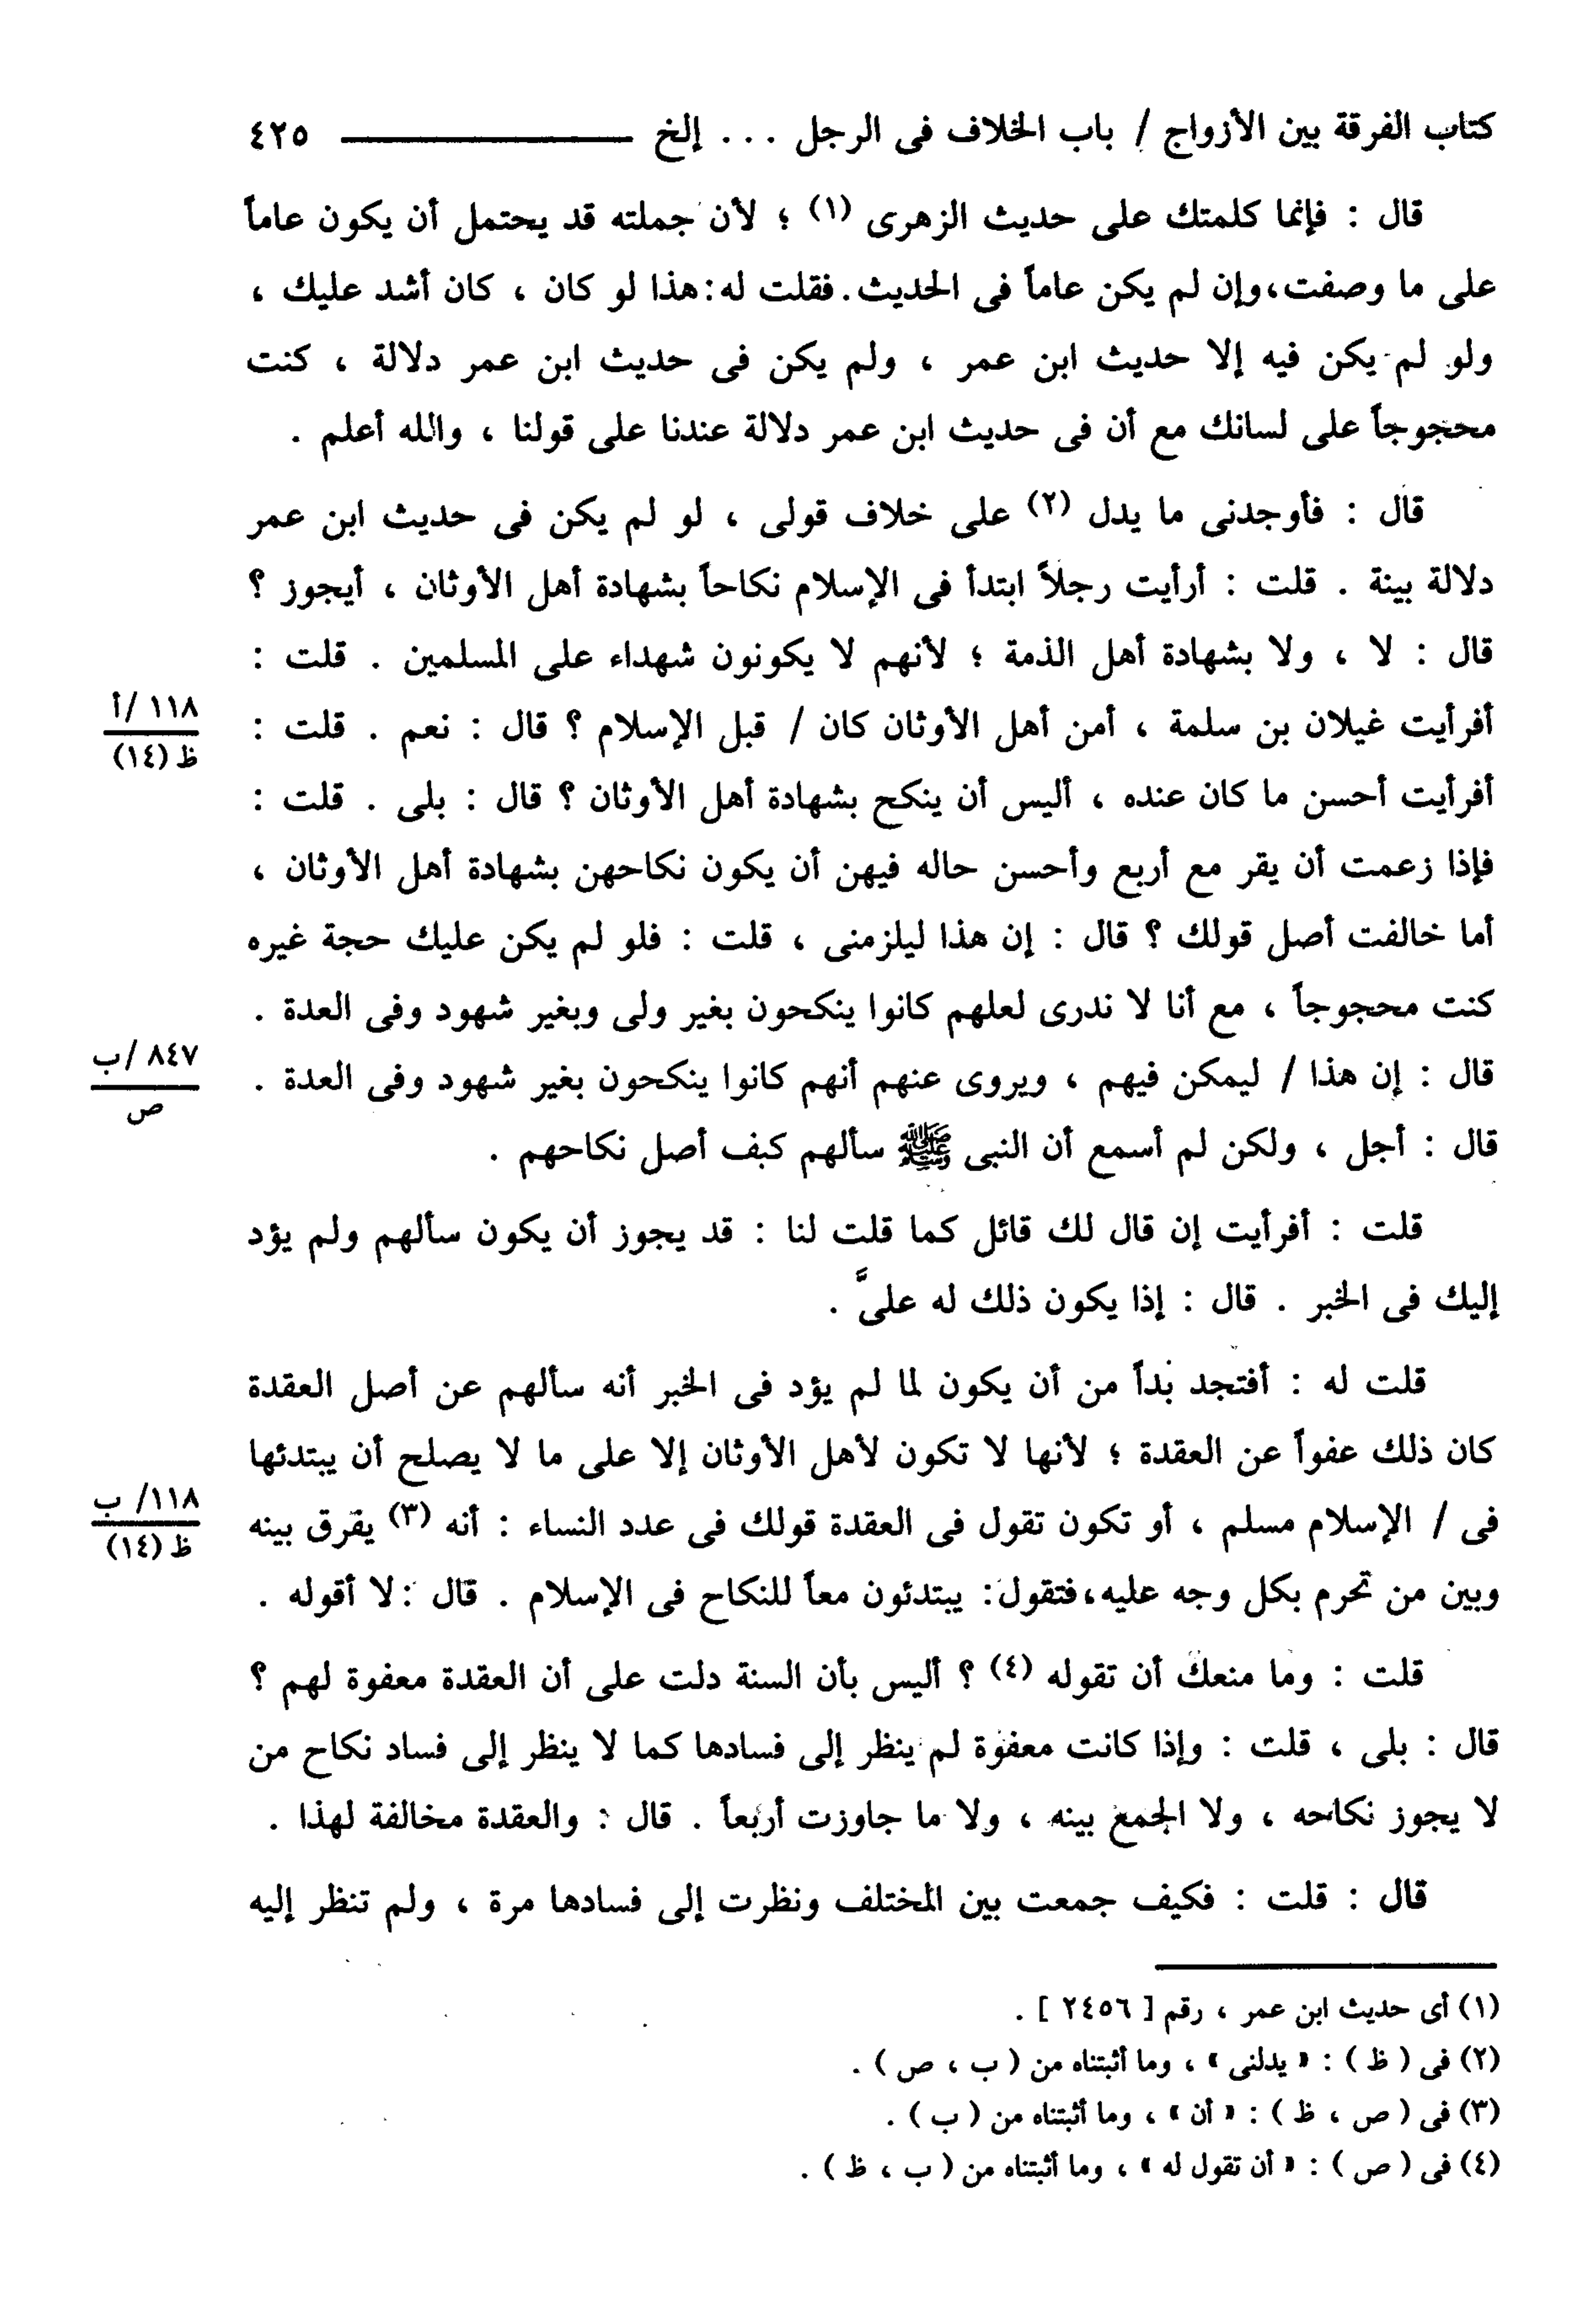 كتاب الفرقة بين الأزواج / باب الخلاف فى الرجل ... إلخ ــــــــــــ ٤٢٥
قال : فإنما كلمتك على حديث الزهرى (١) ؛ لأن جملته قد يحتمل أن يكون عاماً
على ما وصفت، وإن لم يكن عاماً فى الحديث. فقلت له: هذا لو كان ، كان أشد عليك ،
ولو لم يكن فيه إلا حديث ابن عمر ، ولم يكن فى حديث ابن عمر دلالة ، كنت
محجوجاً على لسانك مع أن فى حديث ابن عمر دلالة عندنا على قولنا ، والله أعلم .
قال : فأوجدنى ما يدل (٢) على خلاف قولى ، لو لم يكن فى حديث ابن عمر
دلالة بينة . قلت : أرأيت رجلاً ابتدأ فى الإسلام نكاحاً بشهادة أهل الأوثان ، أيجوز ؟
قال : لا ، ولا بشهادة أهل الذمة ؛ لأنهم لا يكونون شهداء على المسلمين . قلت :
أفرأيت غيلان بن سلمة ، أمن أهل الأوثان كان / قبل الإسلام ؟ قال : نعم . قلت :
١١٨ /أ
ظ (١٤)
أفرأيت أحسن ما كان عنده ، أليس أن ينكح بشهادة أهل الأوثان ؟ قال : بلى . قلت :
فإذا زعمت أن يقر مع أربع وأحسن حاله فيهن أن يكون نكاحهن بشهادة أهل الأوثان ،
أما خالفت أصل قولك ؟ قال : إن هذا ليلزمنى ، قلت : فلو لم يكن عليك حجة غيره
كنت محجوجاً ، مع أنا لا ندرى لعلهم كانوا ينكحون بغير ولى وبغير شهود وفى العدة .
قال : إن هذا / ليمكن فيهم ، ويروى عنهم أنهم كانوا ينكحون بغير شهود وفى العدة .
٨٤٧ /ب
ص
قال : أجل ، ولكن لم أسمع أن النبى ﷺ سألهم كيف أصل نكاحهم .
قلت : أفرأيت إن قال لك قائل كما قلت لنا : قد يجوز أن يكون سألهم ولم يؤد
إليك فى الخبر . قال : إذا يكون ذلك له علىَّ .
قلت له : أفتجد بداً من أن يكون لما لم يؤد فى الخبر أنه سألهم عن أصل العقدة
كان ذلك عفواً عن العقدة ؛ لأنها لا تكون لأهل الأوثان إلا على ما لا يصلح أن يبتدئها
فى / الإسلام مسلم ، أو تكون تقول فى العقدة قولك فى عدد النساء : أنه (٣) يفرق بينه
١١٨/ ب
ظ (١٤)
وبين من تحرم بكل وجه عليه، فتقول: يبتدئون معاً للنكاح فى الإسلام . قال : لا أقوله .
قلت : وما منعك أن تقوله (٤) ؟ أليس بأن السنة دلت على أن العقدة معفوة لهم ؟
قال : بلى ، قلت : وإذا كانت معفوة لم ينظر إلى فسادها كما لا ينظر إلى فساد نكاح من
لا يجوز نكاحه ، ولا الجمع بينه ، ولا ما جاوزت أربعاً . قال : والعقدة مخالفة لهذا .
قال : قلت : فكيف جمعت بين المختلف ونظرت إلى فسادها مرة ، ولم تنظر إليه
(١) أى حديث ابن عمر ، رقم [ ٢٤٥٦ ] .
(٢) فى ( ظ ) : « يدلنى » ، وما أثبتناه من ( ب ، ص ) .
(٣) فى ( ص ، ظ ) : « أن » ، وما أثبتناه من ( ب ) .
(٤) فى ( ص ) : « أن تقول له » ، وما أثبتناه من ( ب ، ظ ) .